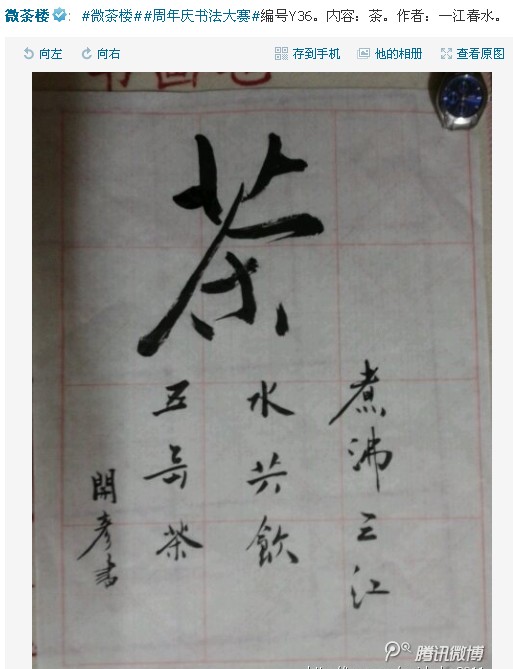 微茶楼: #微茶楼##周年庆书法大赛#编号Y36。内容：茶。作者：一江春水。
向左 向右 存到手机 他的相册 查看原图
茶
煮沸三江
水共飲
五岳茶
開彥書
腾讯微博